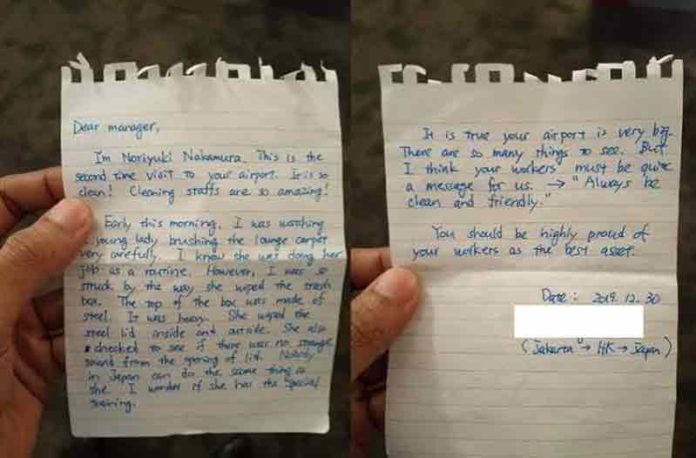 Dear manager,
I'm Noriyuki Nakamura. This is the
second time visit to your airport. It is so
clean! Cleaning staffs are so amazing!
Early this morning, I was watching
young lady brushing the lounge carpet
very carefully. I know she was doing her
job as a routine. However, I was so
struck by the way she wiped the trash
box. The top of the box was made of
steel. It was heavy. She wiped the
steel lid inside and outside. She also
checked to see if there was no strange
sound from the opening of lid. Nobody
in Japan can do the same thing as
she. I wonder if she has the special
training.
It is true your airport is very big.
There are so many things to see. But
I think your workers' must be quite
a message for us. → "Always be
clean and friendly."
You should be highly proud of
your workers as the best asset.
Date: 2019. 12. 30
(Jakarta → HK → Japan)